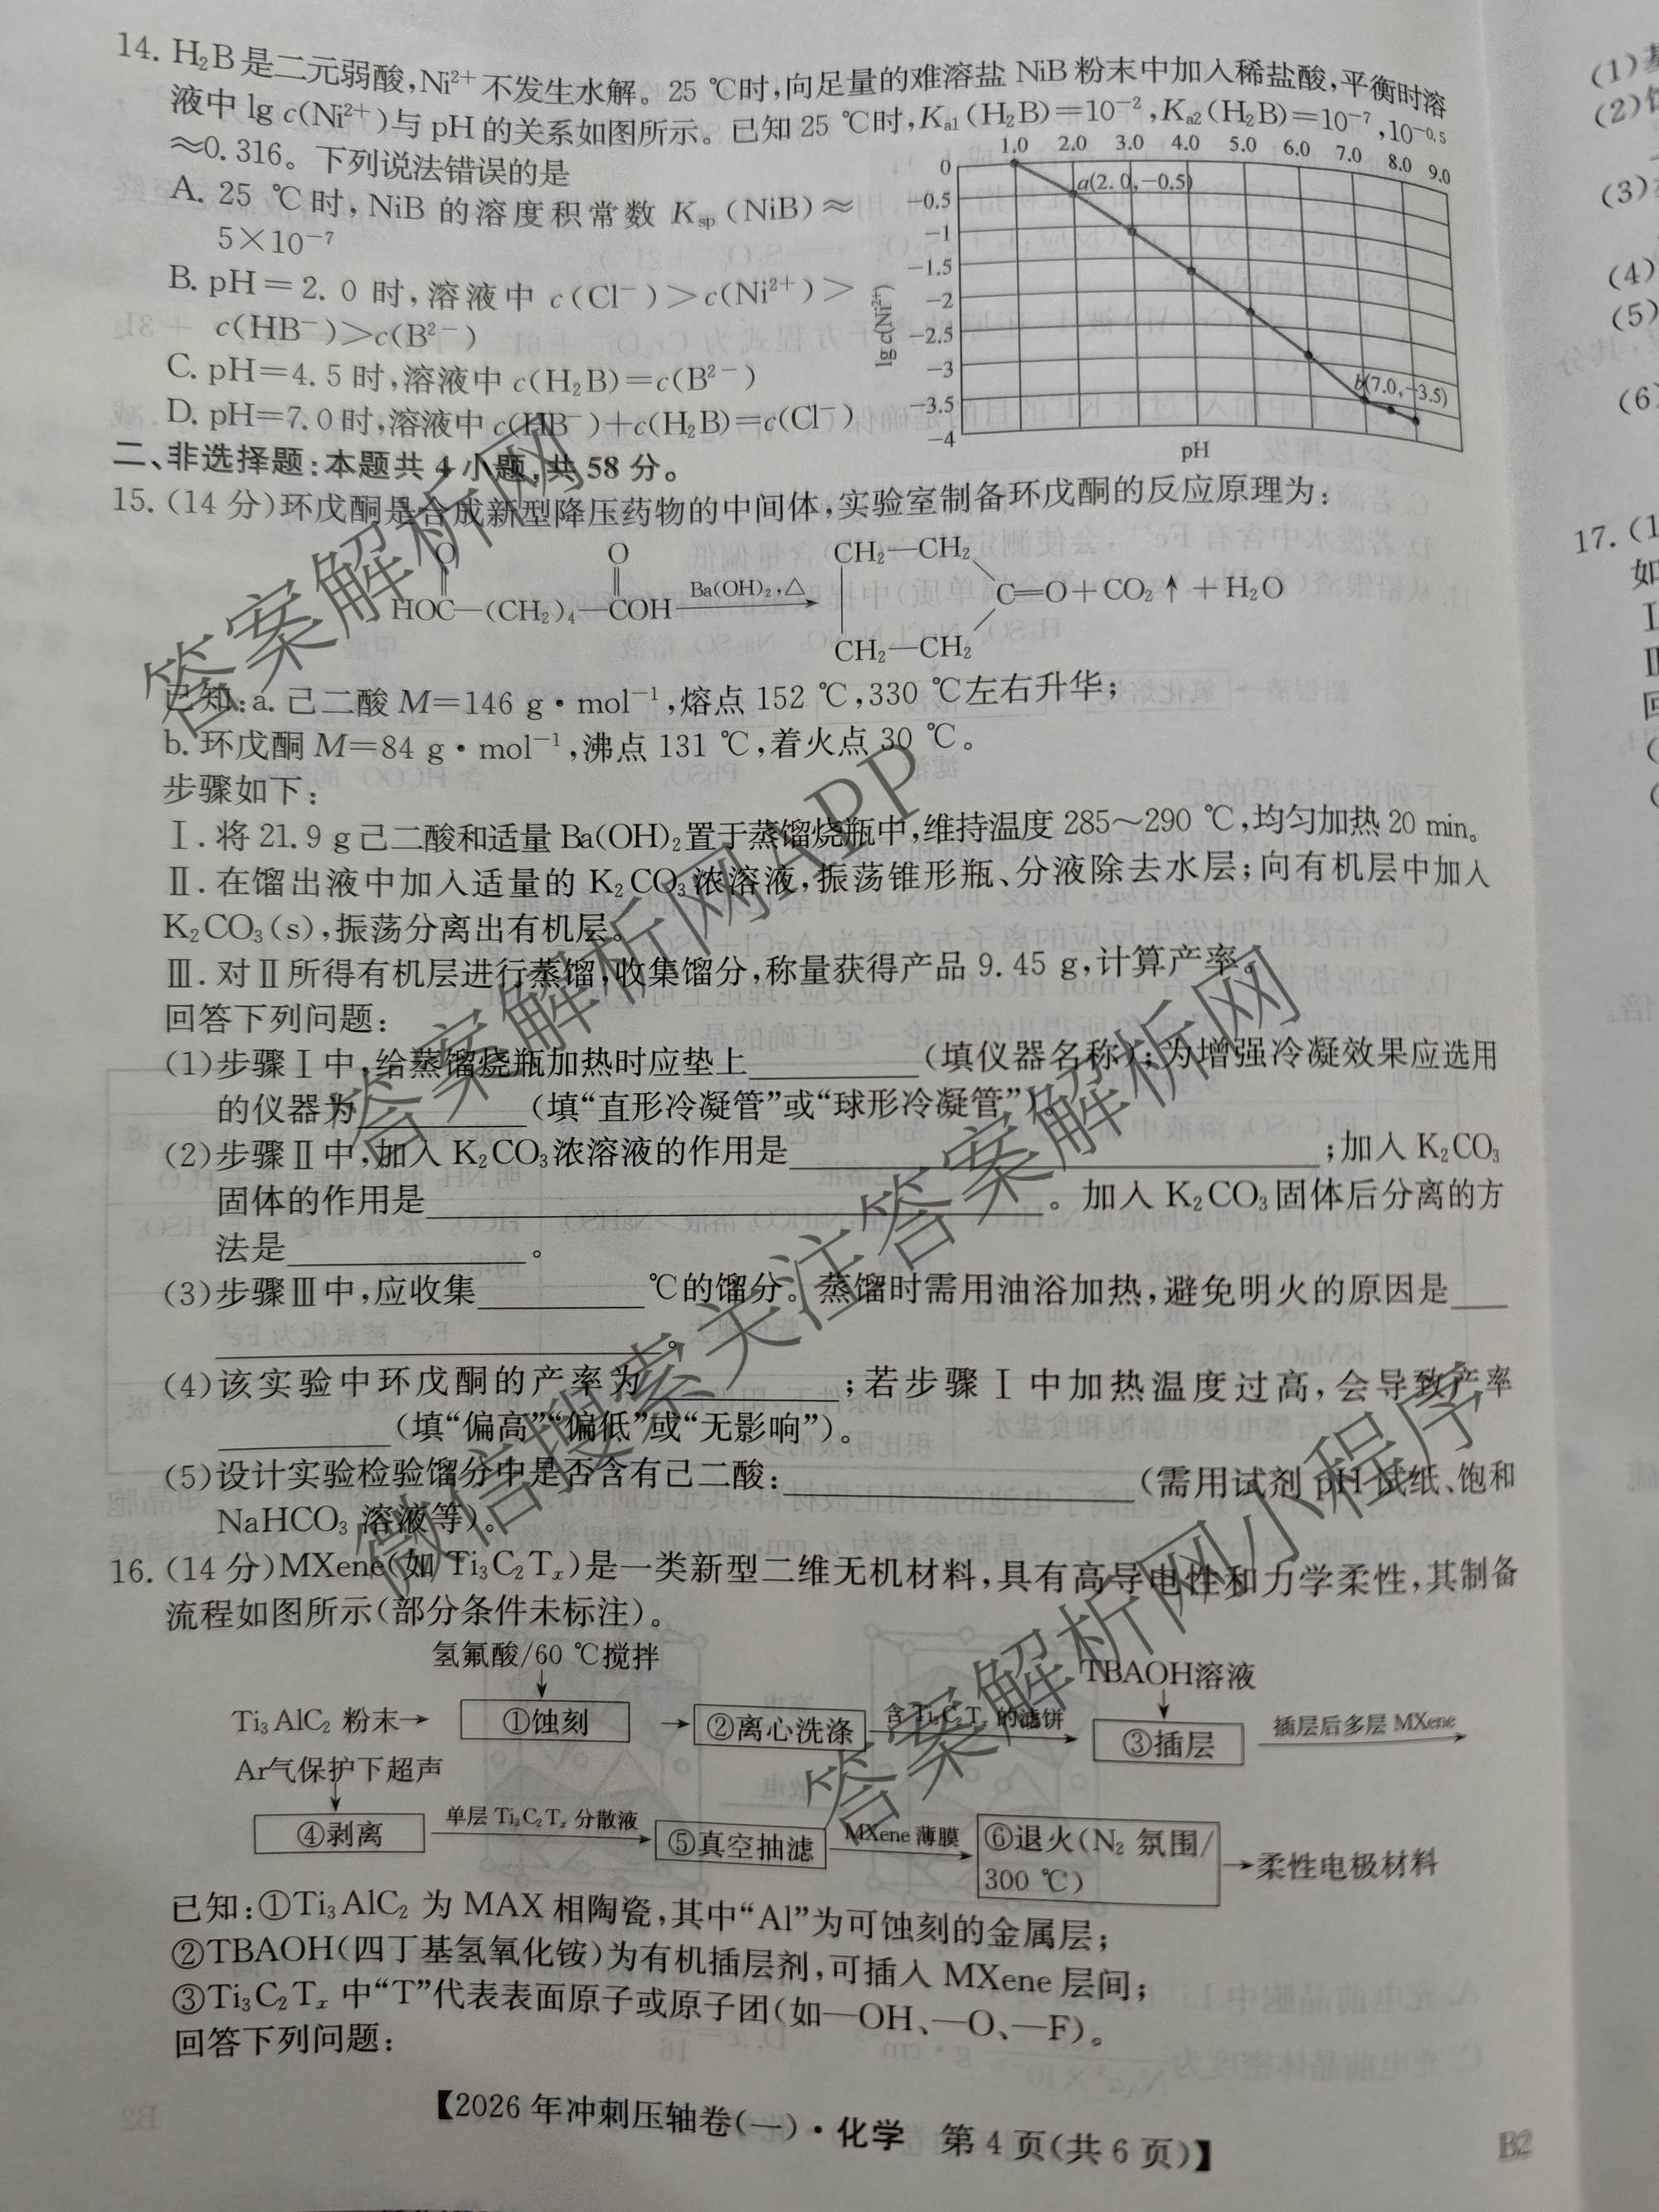 14. H₂B是二元弱酸,Ni²⁺不发生水解。25 ℃时,向足量的难溶盐 NiB 粉末中加入稀盐酸,平衡时溶
液中 lg c(Ni²⁺)与 pH 的关系如图所示。已知 25 ℃时,Kₐ₁(H₂B)=10⁻²,Kₐ₂(H₂B)=10⁻⁷,10⁻⁰·⁵
≈0.316。下列说法错误的是
A. 25 ℃时,NiB 的溶度积常数 Ksp(NiB)≈
5×10⁻⁷
B. pH=2.0 时,溶液中 c(Cl⁻)>c(Ni²⁺)>
c(HB⁻)>c(B²⁻)
C. pH=4.5 时,溶液中 c(H₂B)=c(B²⁻)
D. pH=7.0 时,溶液中 c(HB⁻)+c(H₂B)=c(Cl⁻)
1.0 2.0 3.0 4.0 5.0 6.0 7.0 8.0 9.0
0
−0.5
−1
−1.5
−2
−2.5
−3
−3.5
−4
a(2.0,−0.5)
b(7.0,−3.5)
lg c(Ni²⁺)
pH
二、非选择题:本题共 4 小题,共 58 分。
15. (14 分)环戊酮是合成新型降压药物的中间体,实验室制备环戊酮的反应原理为:
O O CH₂—CH₂
HOC—(CH₂)₄—COH Ba(OH)₂,△ C=O+CO₂↑+H₂O
CH₂—CH₂
已知:a. 己二酸 M=146 g·mol⁻¹,熔点 152 ℃,330 ℃左右升华;
b. 环戊酮 M=84 g·mol⁻¹,沸点 131 ℃,着火点 30 ℃。
步骤如下:
Ⅰ. 将 21.9 g 己二酸和适量 Ba(OH)₂置于蒸馏烧瓶中,维持温度 285～290 ℃,均匀加热 20 min。
Ⅱ. 在馏出液中加入适量的 K₂CO₃浓溶液,振荡锥形瓶、分液除去水层;向有机层中加入
K₂CO₃(s),振荡分离出有机层。
Ⅲ. 对Ⅱ所得有机层进行蒸馏,收集馏分,称量获得产品 9.45 g,计算产率。
回答下列问题:
(1)步骤Ⅰ中,给蒸馏烧瓶加热时应垫上________(填仪器名称);为增强冷凝效果应选用
的仪器为________(填“直形冷凝管”或“球形冷凝管”)。
(2)步骤Ⅱ中,加入 K₂CO₃浓溶液的作用是________________;加入 K₂CO₃
固体的作用是________________。加入 K₂CO₃固体后分离的方
法是________。
(3)步骤Ⅲ中,应收集________℃的馏分。蒸馏时需用油浴加热,避免明火的原因是__
________________。
(4)该实验中环戊酮的产率为________;若步骤Ⅰ中加热温度过高,会导致产率
________(填“偏高”“偏低”或“无影响”)。
(5)设计实验检验馏分中是否含有己二酸:________________(需用试剂 pH 试纸、饱和
NaHCO₃ 溶液等)。
16. (14 分)MXene(如 Ti₃C₂Tₓ)是一类新型二维无机材料,具有高导电性和力学柔性,其制备
流程如图所示(部分条件未标注)。
氢氟酸/60 ℃搅拌 TBAOH溶液
Ti₃AlC₂ 粉末→ ①蚀刻 → ②离心洗涤 含 Ti₃C₂Tₓ 的滤饼 ③插层 插层后多层 MXene
Ar气保护下超声
④剥离 单层 Ti₃C₂Tₓ 分散液 ⑤真空抽滤 MXene 薄膜 ⑥退火(N₂ 氛围/
300 ℃) →柔性电极材料
已知:①Ti₃AlC₂ 为 MAX 相陶瓷,其中“Al”为可蚀刻的金属层;
②TBAOH(四丁基氢氧化铵)为有机插层剂,可插入 MXene 层间;
③Ti₃C₂Tₓ 中“T”代表表面原子或原子团(如—OH、—O、—F)。
回答下列问题:
【2026 年冲刺压轴卷(一)·化学 第 4 页(共 6 页)】
B2
(1)
(2)
(3)
(4)
(5)
(6)
17. (1
如
Ⅰ
Ⅱ
回
答案解析网
答案解析网APP
微信搜索关注答案解析网
答案解析网小程序